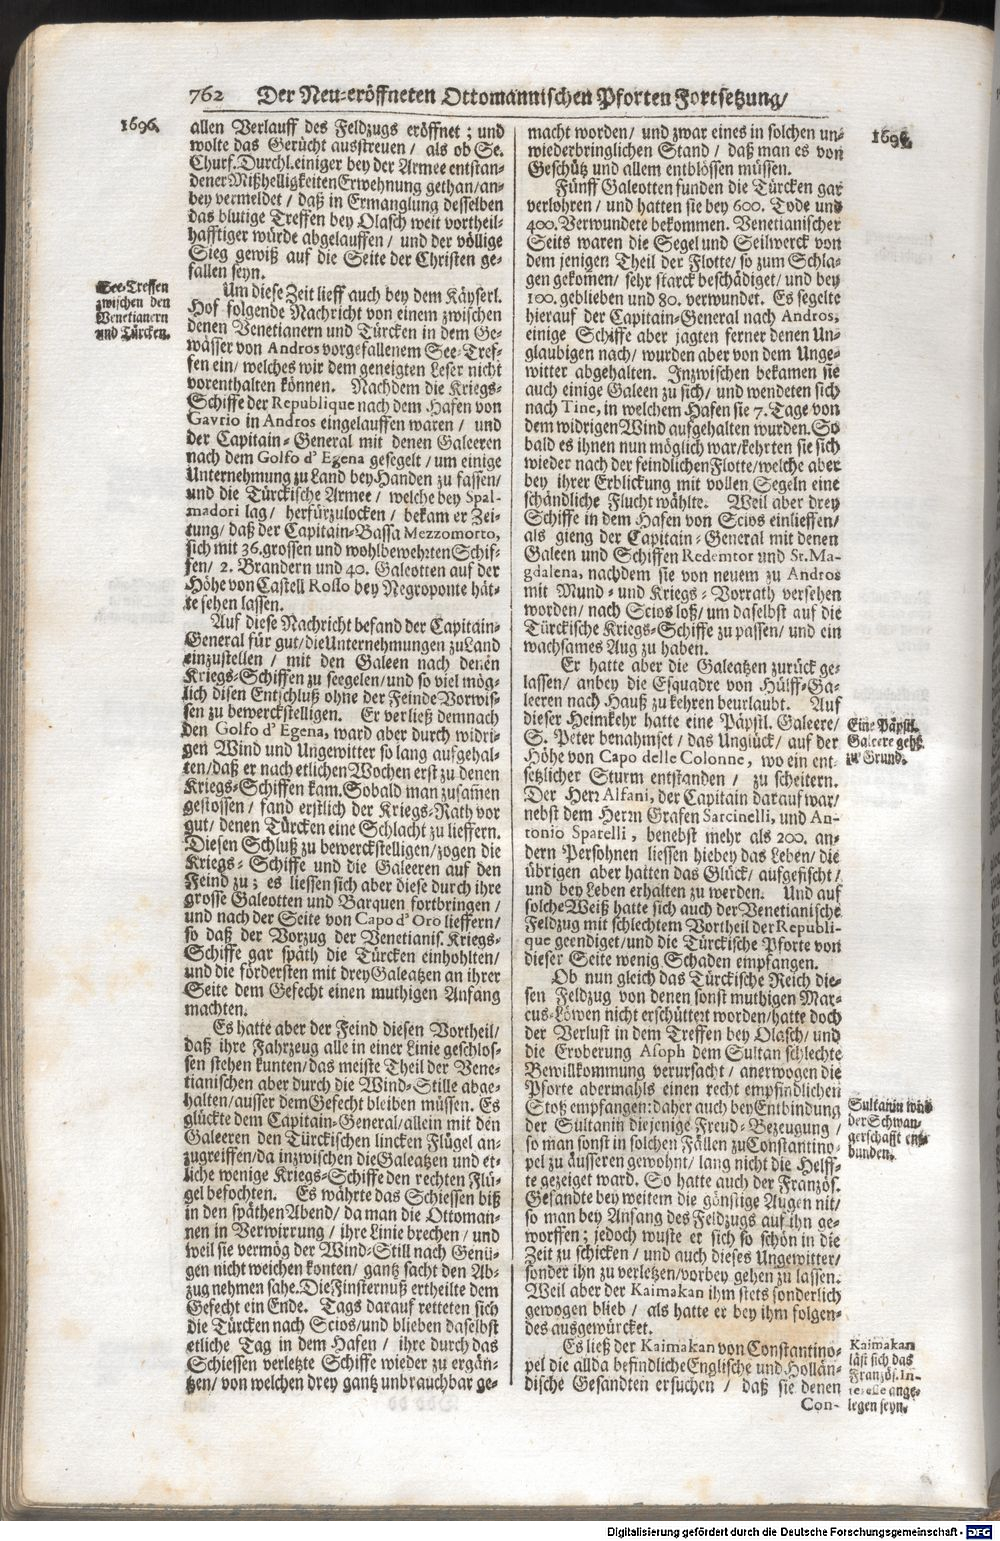 762 Der Neu-eröffneten Ottomannischen Pforten Fortsetzung/
1696.
allen Verlauff des Feldzugs eröffnet; und
wolte das Gerücht ausstreuen/ als ob Se.
Churf. Durchl. einiger bey der Armee entstan-
dener Mißhelligkeiten Erwehnung gethan/ an-
bey vermeldet/ daß in Ermanglung desselben
das blutige Treffen bey Olasch weit vortheil-
hafftiger würde abgelauffen/ und der völlige
Sieg gewiß auf die Seite der Christen ge-
fallen seyn.
See-Treffen
zwischen den
Venetianern
und Türcken.
Um diese Zeit lieff auch bey dem Käyserl.
Hof folgende Nachricht von einem zwischen
denen Venetianern und Türcken in dem Ge-
wässer von Andros vorgefallenem See-Tref-
fen ein/ welches wir dem geneigten Leser nicht
vorenthalten können. Nachdem die Kriegs-
Schiffe der Republique nach dem Hafen von
Gavrio in Andros eingelauffen waren/ und
der Capitain-General mit denen Galeeren
nach dem Golfo d'Egena gesegelt/ um einige
Unternehmung zu Land bey Handen zu fassen/
und die Türckische Armee/ welche bey Spal-
madori lag/ herfürzulocken/ bekam er Zei-
tung/ daß der Capitain-Bassa Mezzomorto,
sich mit 36. grossen und wohlbewehrten Schif-
fen/ 2. Brandern und 40. Galeotten auf der
Höhe von Castell Rosso bey Negroponte hät-
te sehen lassen.
Auf diese Nachricht befand der Capitain-
General für gut/ die Unternehmungen zu Land
einzustellen/ mit den Galeen nach denen
Kriegs-Schiffen zu seegelen/ und so viel mög-
lich disen Entschluß ohne der Feinde Vorwis-
sen zu bewerckstelligen. Er verließ demnach
den Golfo d'Egena, ward aber durch widri-
gen Wind und Ungewitter so lang aufgehal-
ten/ daß er nach etlichen Wochen erst zu denen
Kriegs-Schiffen kam. Sobald man zusam̃en
gestossen/ fand erstlich der Kriegs-Rath vor
gut/ denen Türcken eine Schlacht zu lieffern.
Diesen Schluß zu bewerckstelligen/ zogen die
Kriegs-Schiffe und die Galeeren auf den
Feind zu; es liessen sich aber diese durch ihre
grosse Galeotten und Barquen fortbringen/
und nach der Seite von Capo d'Oro lieffern/
so daß der Vorzug der Venetianis. Kriegs-
Schiffe gar späth die Türcken einhohlten/
und die fördersten mit drey Galeatzen an ihrer
Seite dem Gefecht einen muthigen Anfang
machten.
Es hatte aber der Feind diesen Vortheil/
daß ihre Fahrzeug alle in einer Linie geschlos-
sen stehen kunten/ das meiste Theil der Vene-
tianischen aber durch die Wind-Stille abge-
halten/ ausser dem Gefecht bleiben müssen. Es
glückte dem Capitain-General/ allein mit den
Galeeren den Türckischen lincken Flügel an-
zugreiffen/ da inzwischen die Galeatzen und et-
liche wenige Kriegs-Schiffe den rechten Flü-
gel befochten. Es währte das Schiessen biß
in den späthen Abend/ da man die Ottoman-
nen in Verwirrung/ ihre Linie brechen/ und
weil sie vermög der Wind-Still nach Genü-
gen nicht weichen konten/ gantz sacht den Ab-
zug nehmen sahe. Die Finsternuß ertheilte dem
Gefecht ein Ende. Tags darauf retteten sich
die Türcken nach Scios/ und blieben daselbst
etliche Tag in dem Hafen/ ihre durch das
Schiessen verletzte Schiffe wieder zu ergän-
tzen/ von welchen drey gantz unbrauchbar ge-
macht worden/ und zwar eines in solchen un-
wiederbringlichen Stand/ daß man es von
Geschütz und allem entblössen müssen.
1696.
Fünff Galeotten funden die Türcken gar
verlohren/ und hatten sie bey 600. Tode und
400. Verwundete bekommen. Venetianischer
Seits waren die Segel und Seilwerck von
dem jenigen Theil der Flotte/ so zum Schla-
gen gekom̃en/ sehr starck beschädiget/ und bey
100. geblieben und 80. verwundet. Es segelte
hierauf der Capitain-General nach Andros,
einige Schiffe aber jagten ferner denen Un-
glaubigen nach/ wurden aber von dem Unge-
witter abgehalten. Inzwischen bekamen sie
auch einige Galeen zu sich/ und wendeten sich
nach Tine, in welchem Hafen sie 7. Tage von
dem widrigen Wind aufgehalten wurden. So
bald es ihnen nun möglich war/ kehrten sie sich
wieder nach der feindlichen Flotte/ welche aber
bey ihrer Erblickung mit vollen Segeln eine
schändliche Flucht wählte. Weil aber drey
Schiffe in dem Hafen von Scios einlieffen/
als gieng der Capitain-General mit denen
Galeen und Schiffen Redemtor und St. Ma-
gdalena, nachdem sie von neuem zu Andros
mit Mund- und Kriegs-Vorrath versehen
worden/ nach Scios loß/ um daselbst auf die
Türckische Kriegs-Schiffe zu passen/ und ein
wachsames Aug zu haben.
Er hatte aber die Galeatzen zurück ge-
lassen/ anbey die Esquadre von Hülff-Ga-
leeren nach Hauß zu kehren beurlaubt. Auf
dieser Heimkehr hatte eine Päpstl. Galeere/
S. Peter benahmset/ das Unglück/ auf der
Höhe von Capo delle Colonne, wo ein ent-
setzlicher Sturm entstanden/ zu scheitern.
Der Herr Alfani, der Capitain darauf war/
nebst dem Herrn Grafen Sarcinelli, und An-
tonio Sparelli, benebst mehr als 200. an-
dern Persohnen liessen hiebey das Leben/ die
übrigen aber hatten das Glück/ aufgefischt/
und bey Leben erhalten zu werden. Und auf
solche Weiß hatte sich auch der Venetianische
Feldzug mit schlechtem Vortheil der Republi-
que geendiget/ und die Türckische Pforte von
dieser Seite wenig Schaden empfangen.
Eine Päpstl.
Galeere geht
zu Grund.
Ob nun gleich das Türckische Reich die-
sen Feldzug von denen sonst muthigen Mar-
cus-Löwen nicht erschüttert worden/ hatte doch
der Verlust in dem Treffen bey Olasch/ und
die Eroberung Asoph dem Sultan schlechte
Bewillkommung verursacht/ anerwogen die
Pforte abermahls einen recht empfindlichen
Stoß empfangen: daher auch bey Entbindung
der Sultanin diejenige Freud-Bezeugung/
so man sonst in solchen Fällen zu Constantino-
pel zu äusseren gewohnt/ lang nicht die Helff-
te gezeiget ward. So hatte auch der Französ.
Gesandte bey weitem die günstige Augen nit/
so man bey Anfang des Feldzugs auf ihn ge-
worffen; jedoch wuste er sich so schön in die
Zeit zu schicken/ und auch dieses Ungewitter/
sonder ihn zu verletzen/ vorbey gehen zu lassen.
Weil aber der Kaimakan ihm stets sonderlich
gewogen blieb/ als hatte er bey ihm folgen-
des ausgewürcket.
Sultanin wird
der Schwan-
gerschafft ent-
bunden.
Es ließ der Kaimakan von Constantino-
pel die allda befindliche Englische und Hollän-
dische Gesandten ersuchen/ daß sie denen
Con-
Kaimakan
läst sich das
Französ. In-
teresse ange-
legen seyn.
Digitalisierung gefördert durch die Deutsche Forschungsgemeinschaft - DFG